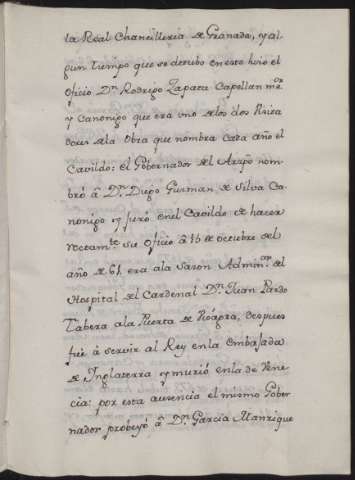 la Real Chancilleria de Granada, y al-
gun tiempo que se detubo en esto hizo el
oficio Dn. Rodrigo Zapata Capellan mor.
y Canonigo que era uno de los dos Visita
dores de la Obra que nombra cada año el
Cavildo: el Gobernador del Arzpo. nom-
bró â Dn. Diego Guzman de Silva Ca-
nonigo y juró en el Cavildo de hacer
rectamte. su Oficio â 15 de octubre del
año de 61 era ala sazon Adminor. del
Hospital del Cardenal Dn. Juan Pardo
Tabera ala Puerta de Visagra, despues
fué â servir al Rey en la embajada
de Inglaterra y murió en la de Vene
cia: por esta ausencia el mismo Gober
nador probeyó â Dn. Garcia Manrique